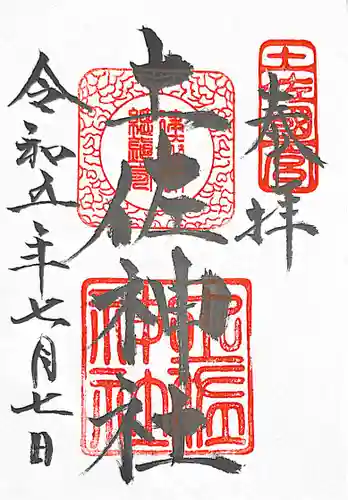 奉拝
土佐國一宮
土佐神社
土佐神社
令和五年七月七日